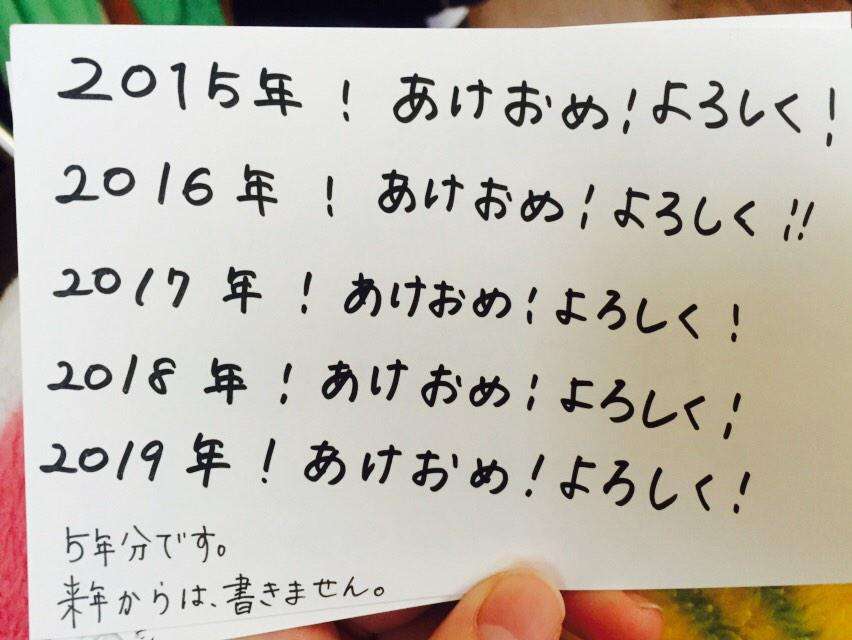 2015年！あけおめ！よろしく！
2016年！あけおめ！よろしく!!
2017年！あけおめ！よろしく！
2018年！あけおめ！よろしく！
2019年！あけおめ！よろしく！
5年分です。
来年からは、書きません。